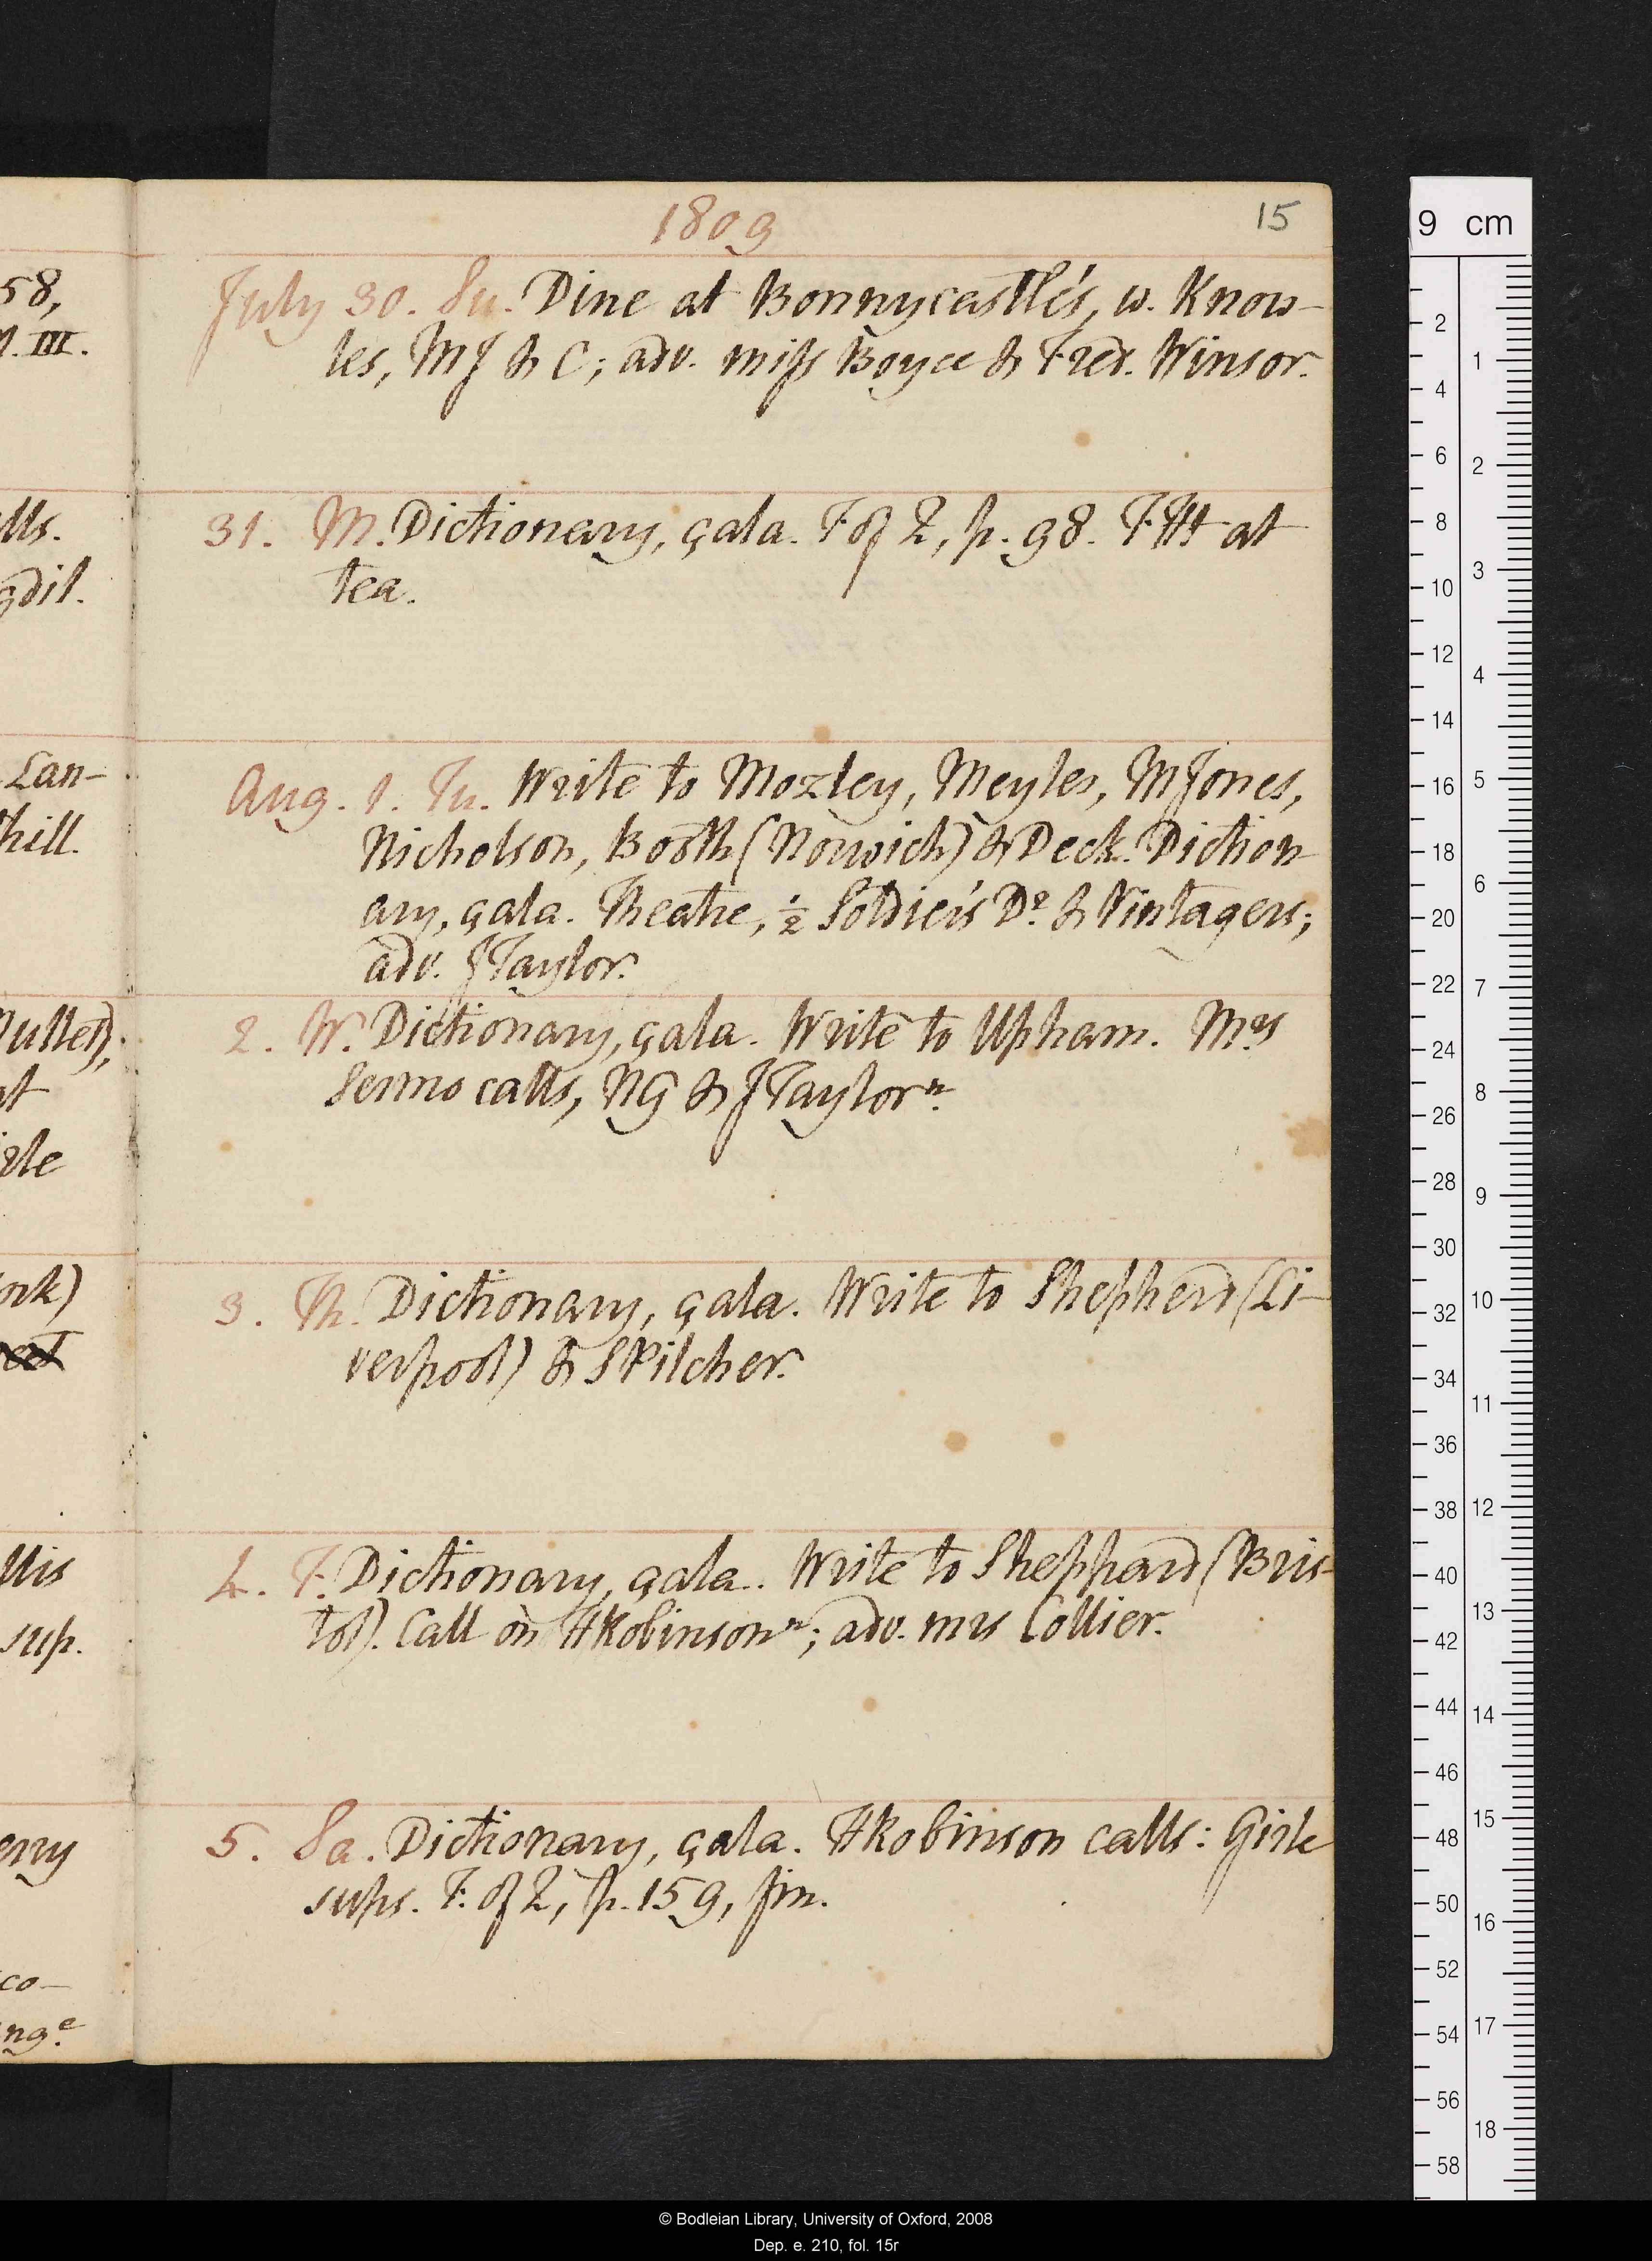 1809
15
58,
III.
July 30. Su. Dine at Bonnycastle's, w. Know-
les, MJ & C; adv. miss Boyce & Fred. Winsor.
lls.
gdil.
31. M. Dictionary, çala. F of Z, p. 98. FH at
tea.
Lan-
hill.
Aug. 1. Tu. Write to Mozley, Meyler, MJones,
Nicholson, Booth (Norwich) & Deck. Diction
ary, çala. Theatre, ½ Soldier's Dr. & Vintagers;
adv. JTaylor.
ullet),
at
rle
2. W. Dictionary, çala. Write to Upham. Mrs
Sermo calls, NG & JTaylor n.
3. Th. Dictionary, çala. Write to Shepherd (Li-
verpool) & SPilcher.
ork)
4. F. Dictionary, çala. Write to Sheppard (Bris-
tol). Call on HRobinson n; adv. mrs Collier.
llis
sup.
5. Sa. Dictionary, çala. HRobinson calls: Girle
sups. F. of Z, p. 159, fin.
erry
co-
nge.
9 cm
2
4
6
8
10
12
14
16
18
20
22
24
26
28
30
32
34
36
38
40
42
44
46
48
50
52
54
56
58
1
2
3
4
5
6
7
8
9
10
11
12
13
14
15
16
17
18
© Bodleian Library, University of Oxford, 2008
Dep. e. 210, fol. 15r